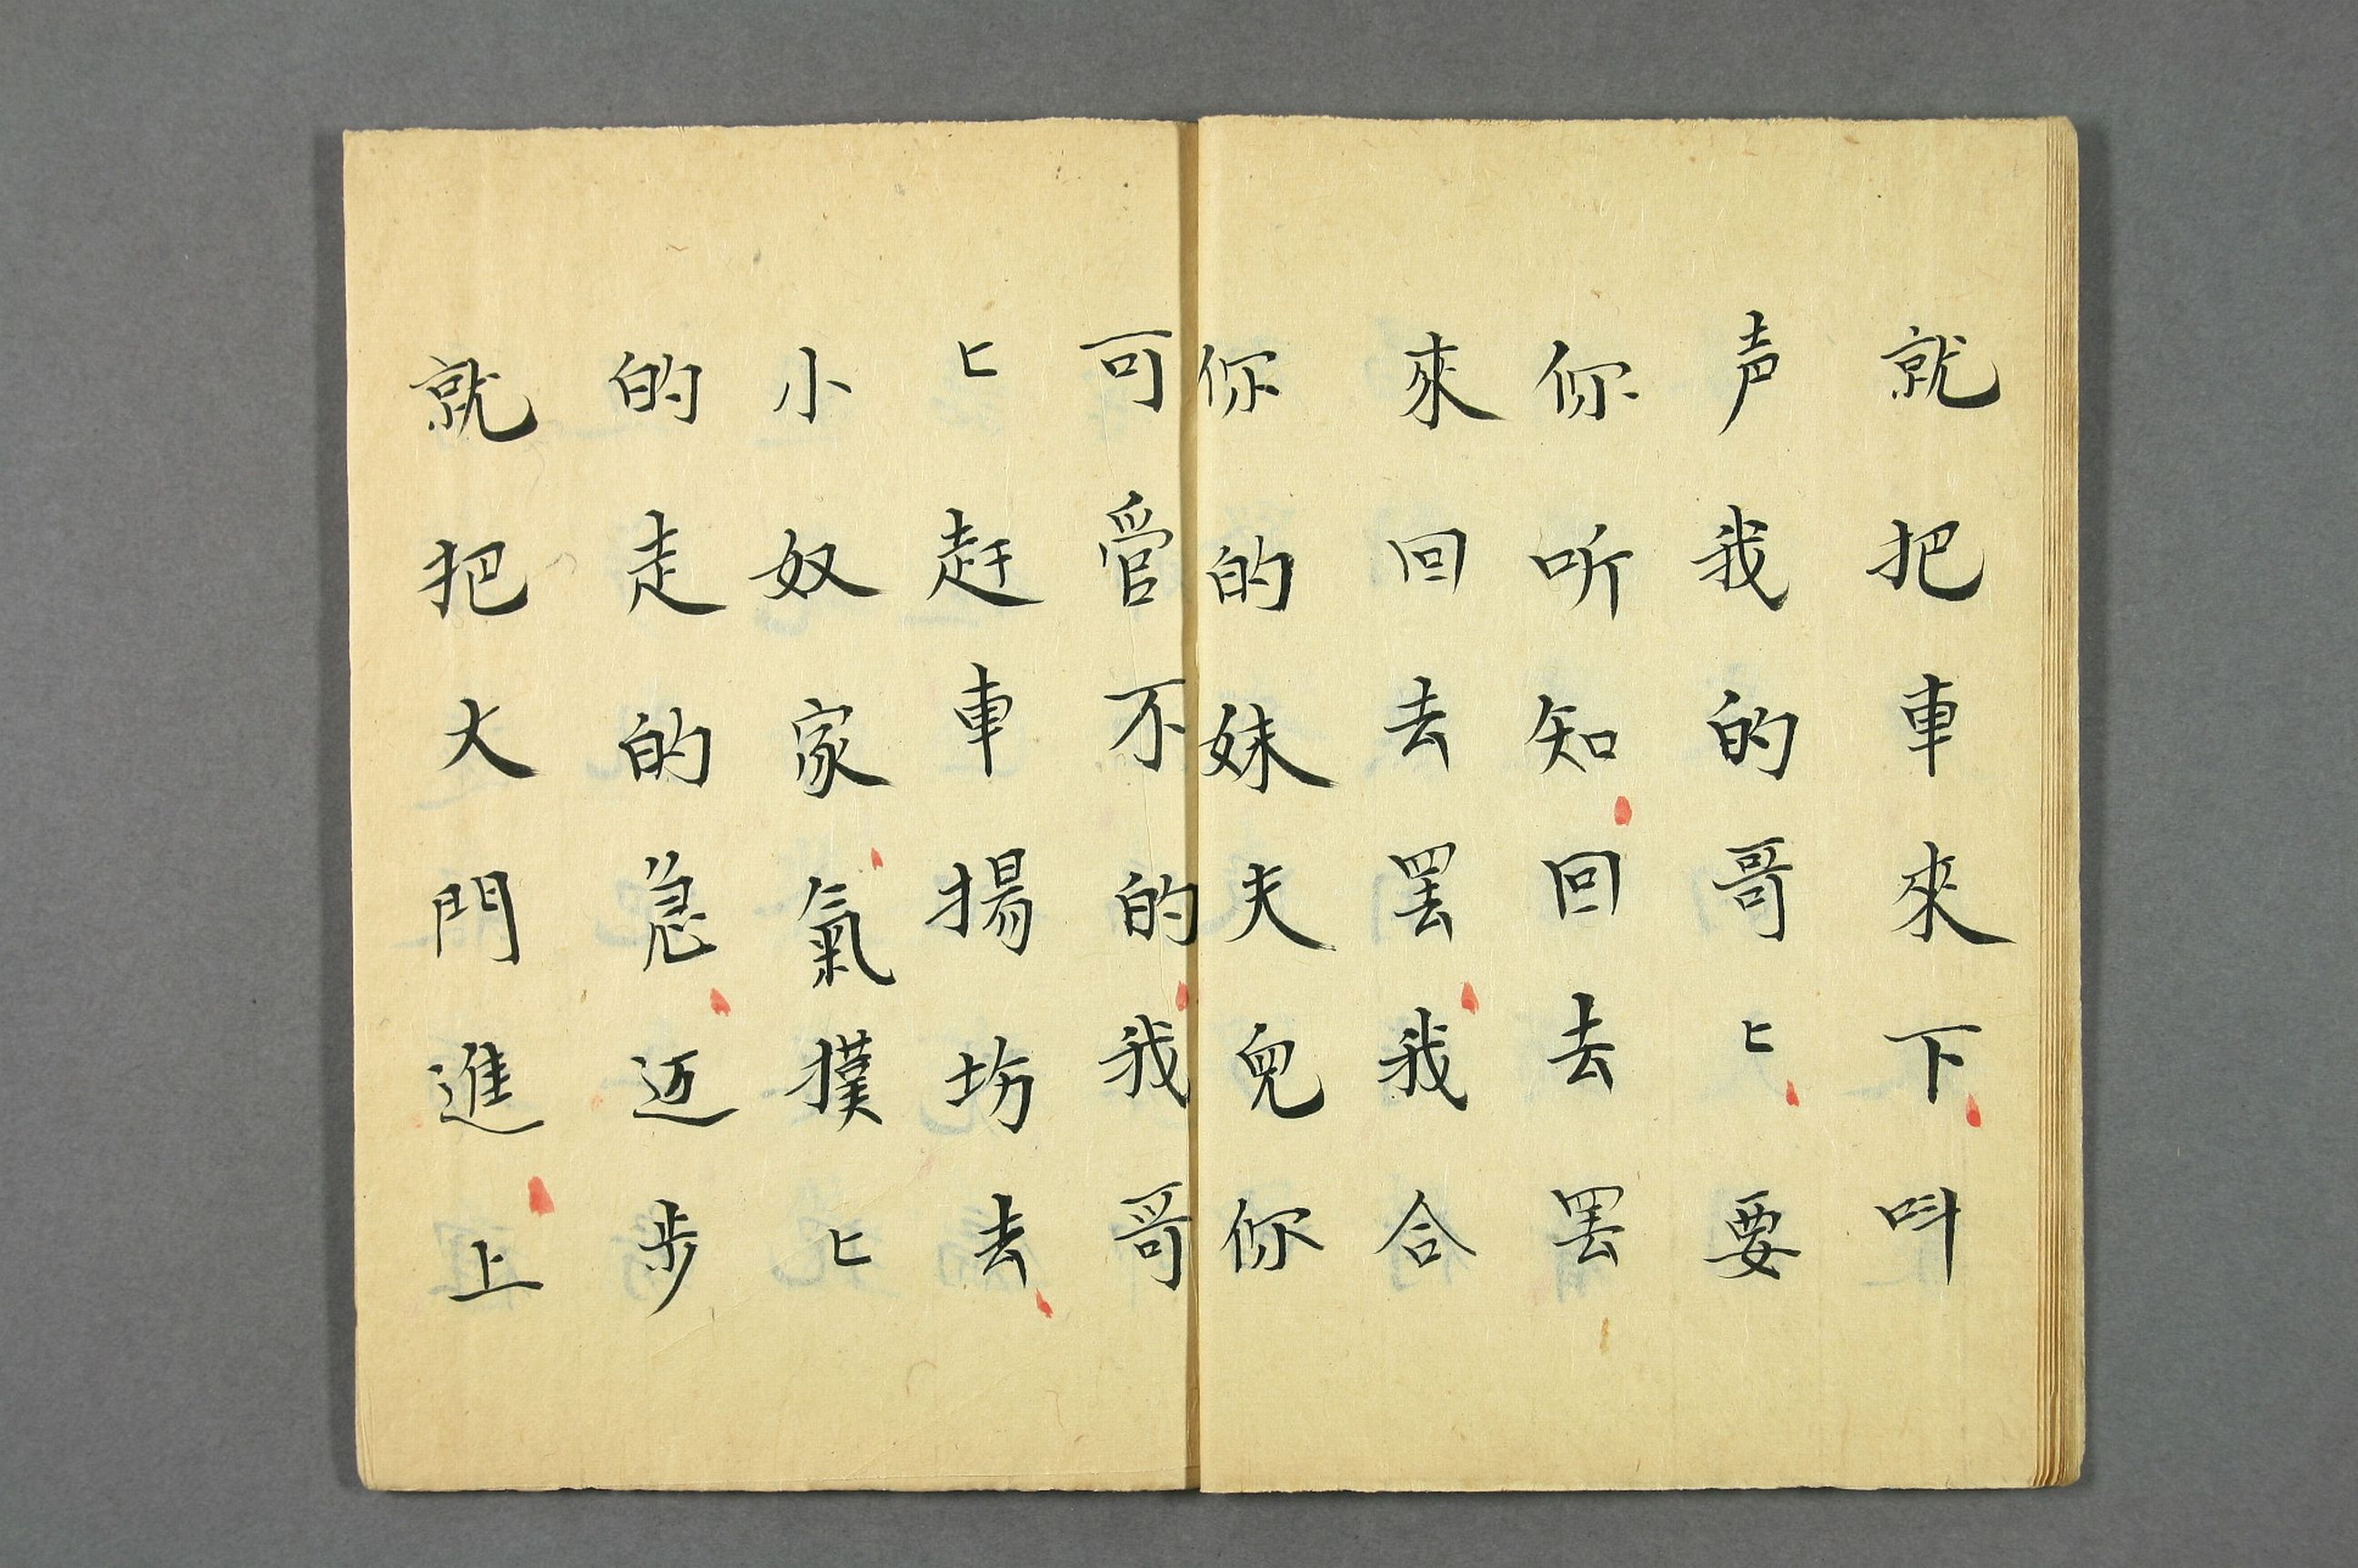 就把車來下叫
声我的哥〻要
你听知回去罢
來回去罢我合
你的妹夫兒你
可管不的我哥
〻赶車揚坊去
小奴家氣撲〻
的走的急迈步
就把大門進上